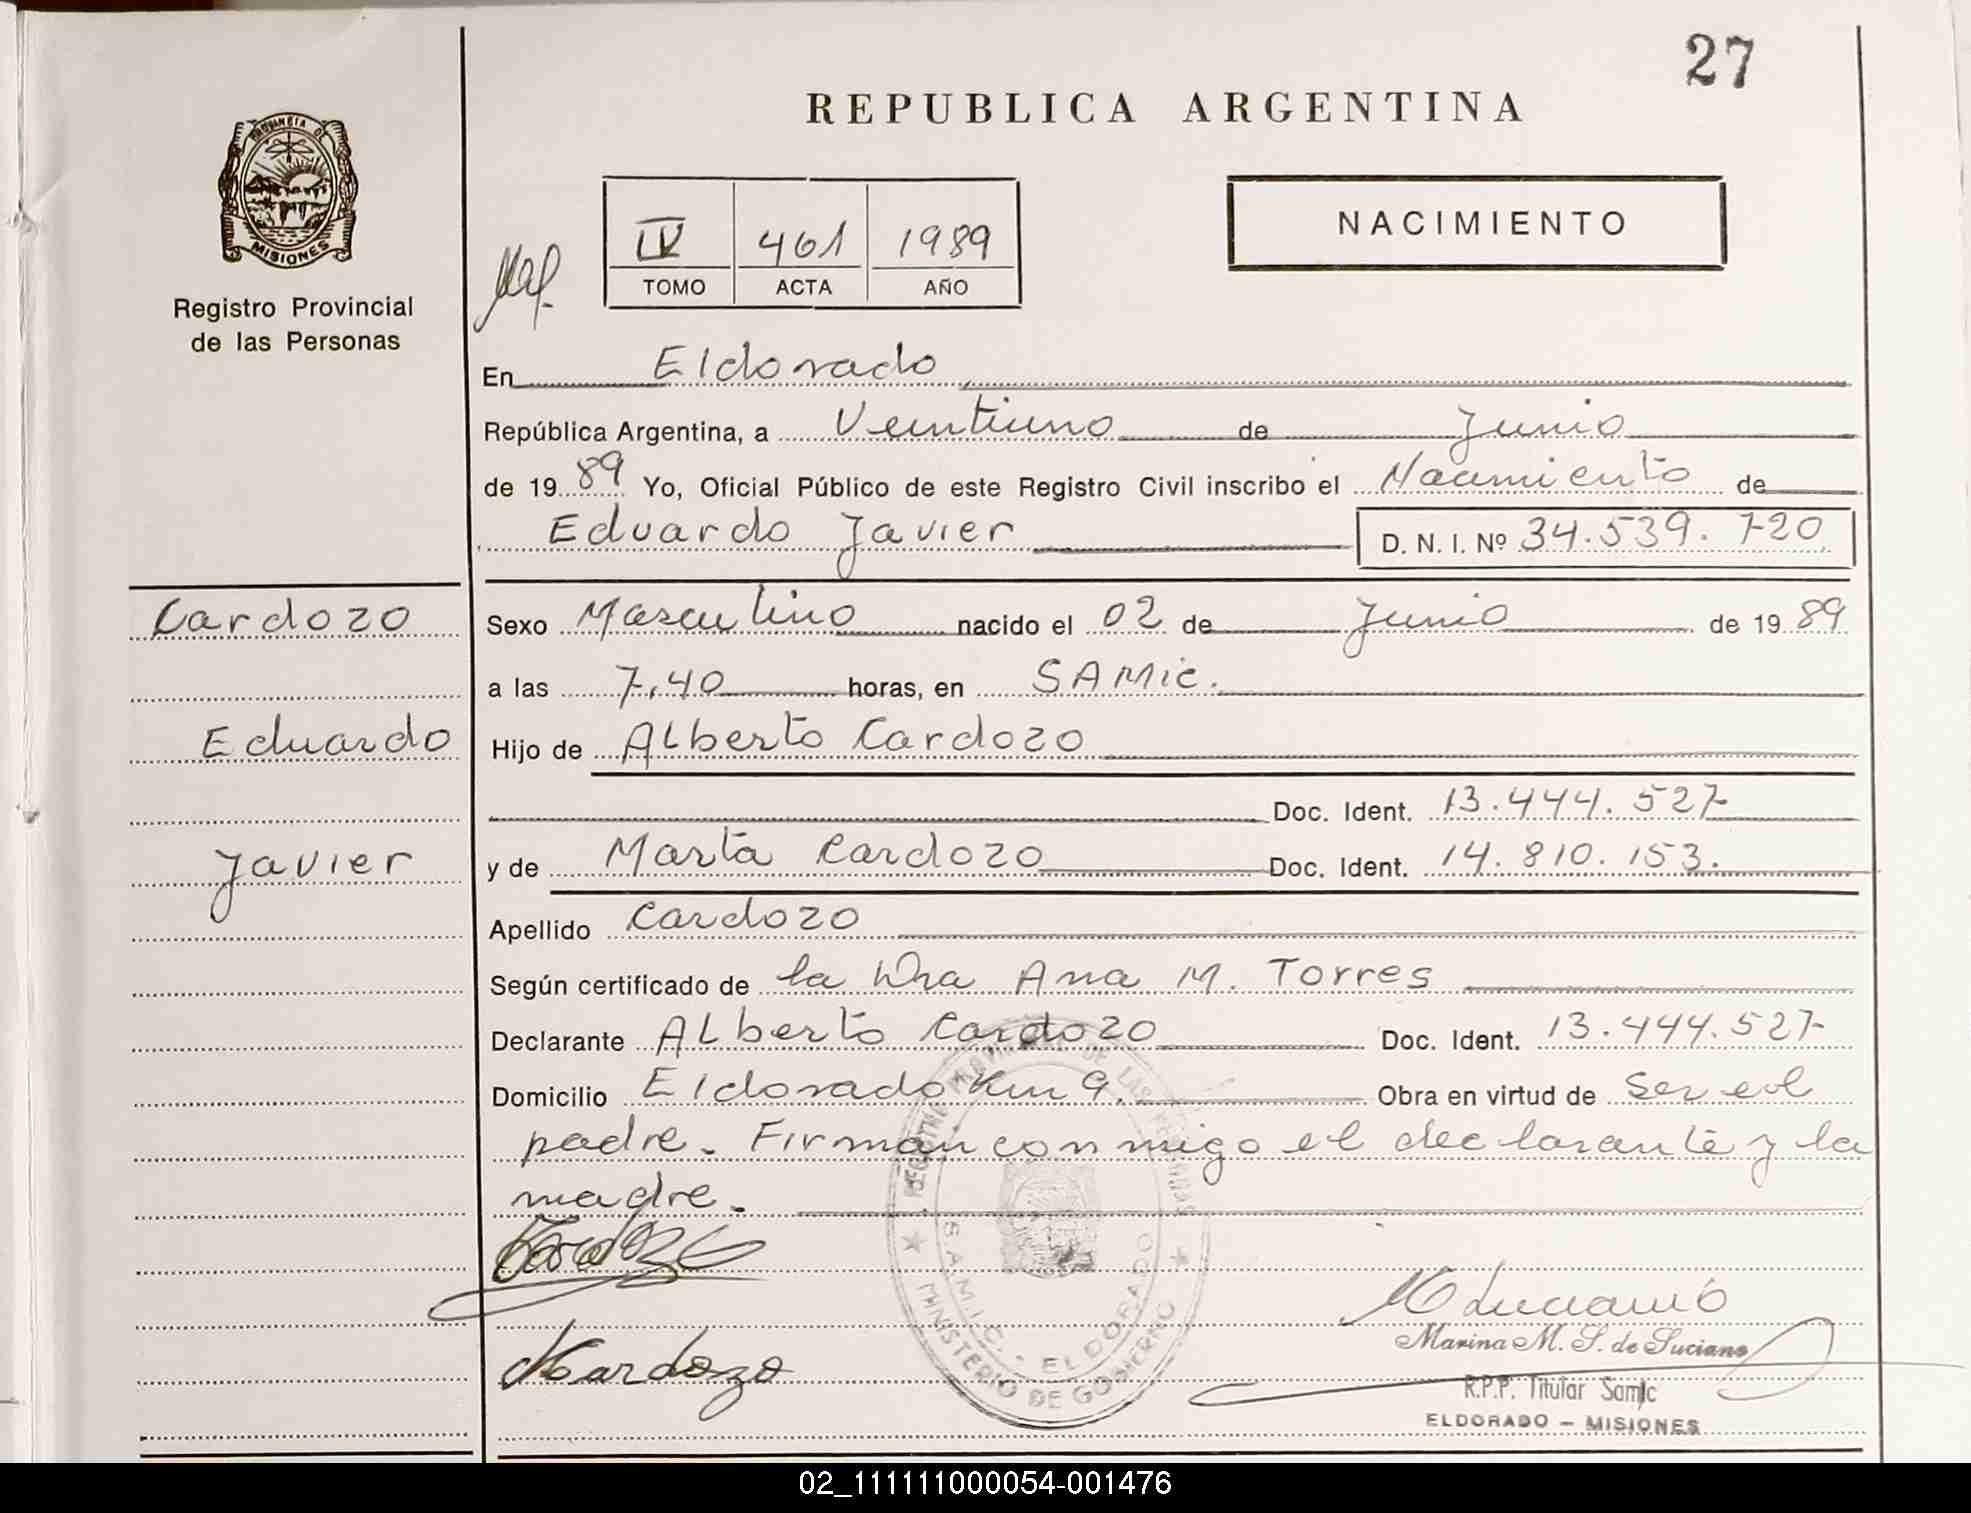 27
REPUBLICA ARGENTINA
PROVINCIA DE
MISIONES
Registro Provincial
de las Personas
IV 461 1989
TOMO ACTA AÑO
NACIMIENTO
En Eldorado
República Argentina, a Veintiuno de Junio
de 1989 Yo, Oficial Público de este Registro Civil inscribo el Nacimiento de
Eduardo Javier D. N. I. Nº 34.539.720
Cardozo
Eduardo
Javier
Sexo Masculino nacido el 02 de Junio de 1989
a las 7,40 horas, en SAMic.
Hijo de Alberto Cardozo
Doc. Ident. 13.444.527
y de Marta Cardozo Doc. Ident. 14.810.153.
Apellido Cardozo
Según certificado de la Dra Ana M. Torres
Declarante Alberto Cardozo Doc. Ident. 13.444.527
Domicilio Eldorado Km 9. Obra en virtud de ser el
padre. Firman conmigo el declarante y la
madre.
Cardozo
MCardozo
REGISTRO PROVINCIAL DE LAS PERSONAS
S.A.M.I.C. - ELDORADO
MINISTERIO DE GOBIERNO
M Luciano
Marina M. S. de Luciano
R.P.P. Titular Samic
ELDORADO - MISIONES
02_111111000054-001476